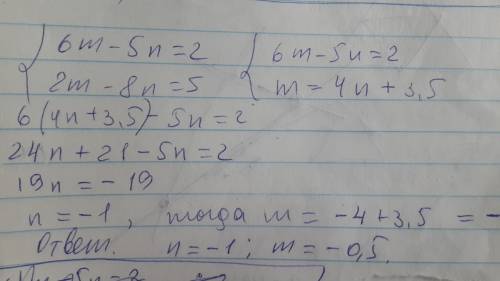 6m-5n=2 6m-5n=2
2m-8n=5 m=4n+3,5
6(4n+3,5)-5n=2
24n+21-5n=2
19n=-19
n=-1, тогда m=-4+3,5=-
Ответ. n=-1; m=-0,5.